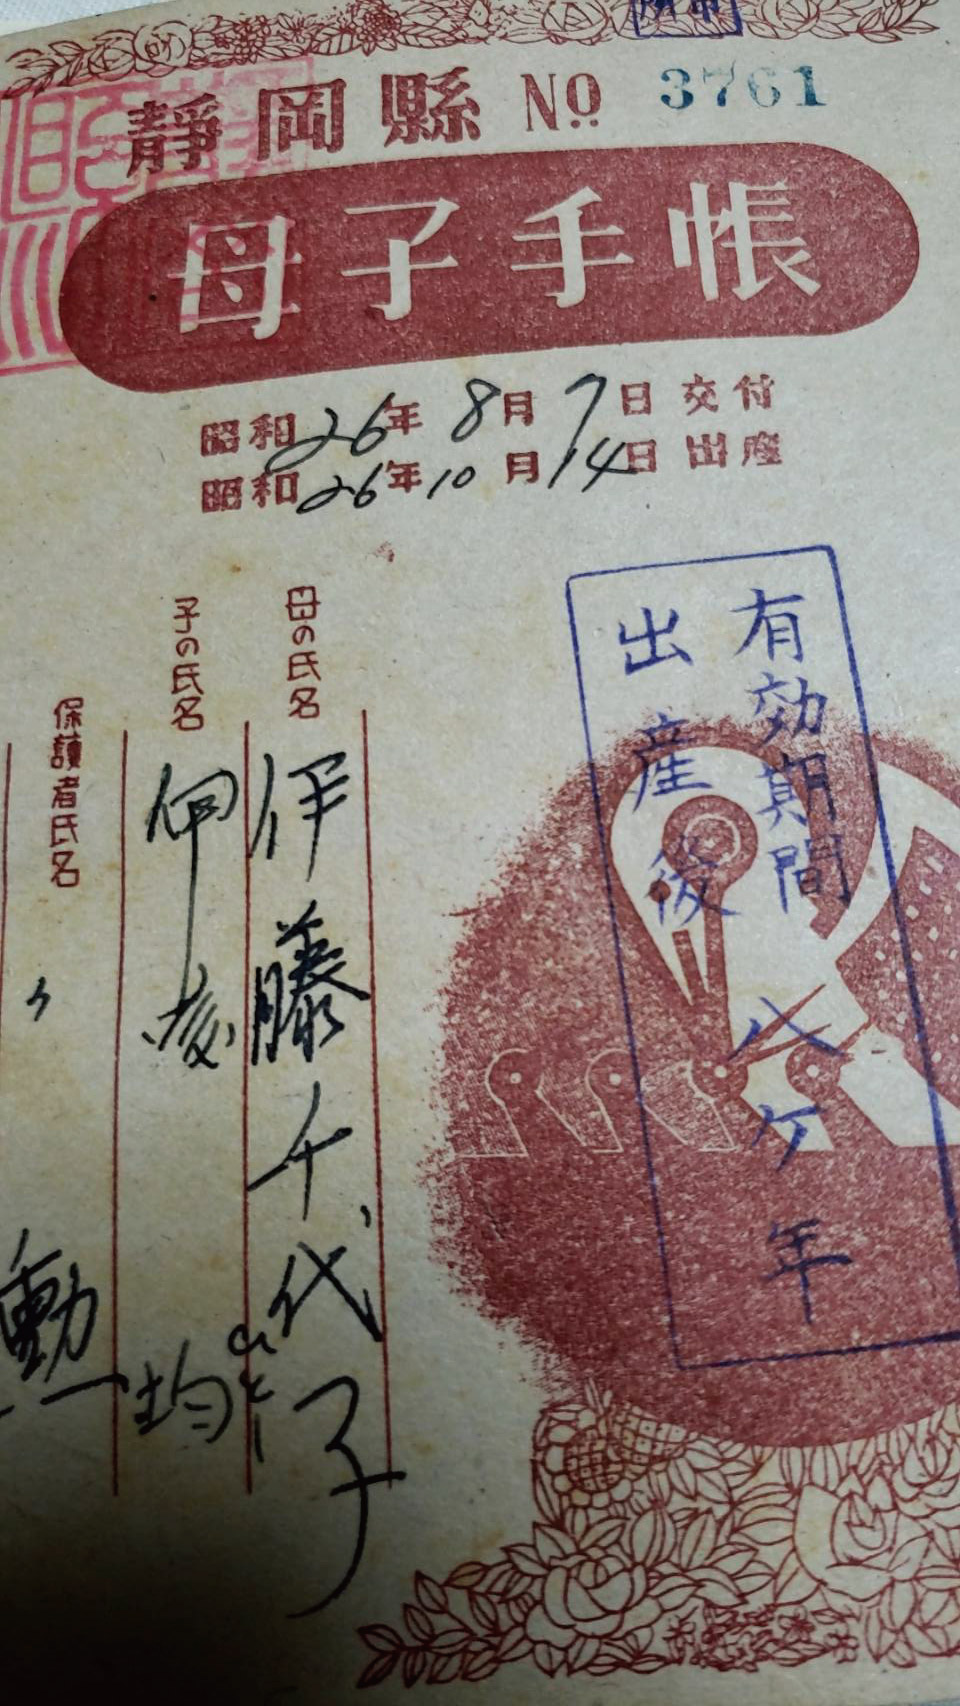 靜岡縣 No. 3761
母子手帳
昭和26年8月7日交付
昭和26年10月14日出産
有効期間 八ヶ年
出産後
母の氏名 伊藤千代子
子の氏名 均
保護者氏名 〃